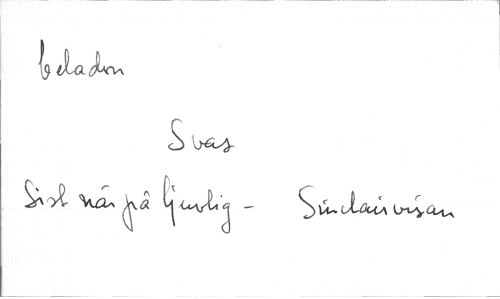 Celadon
Svas
Sist när på ljuvlig - Sinclairvisan